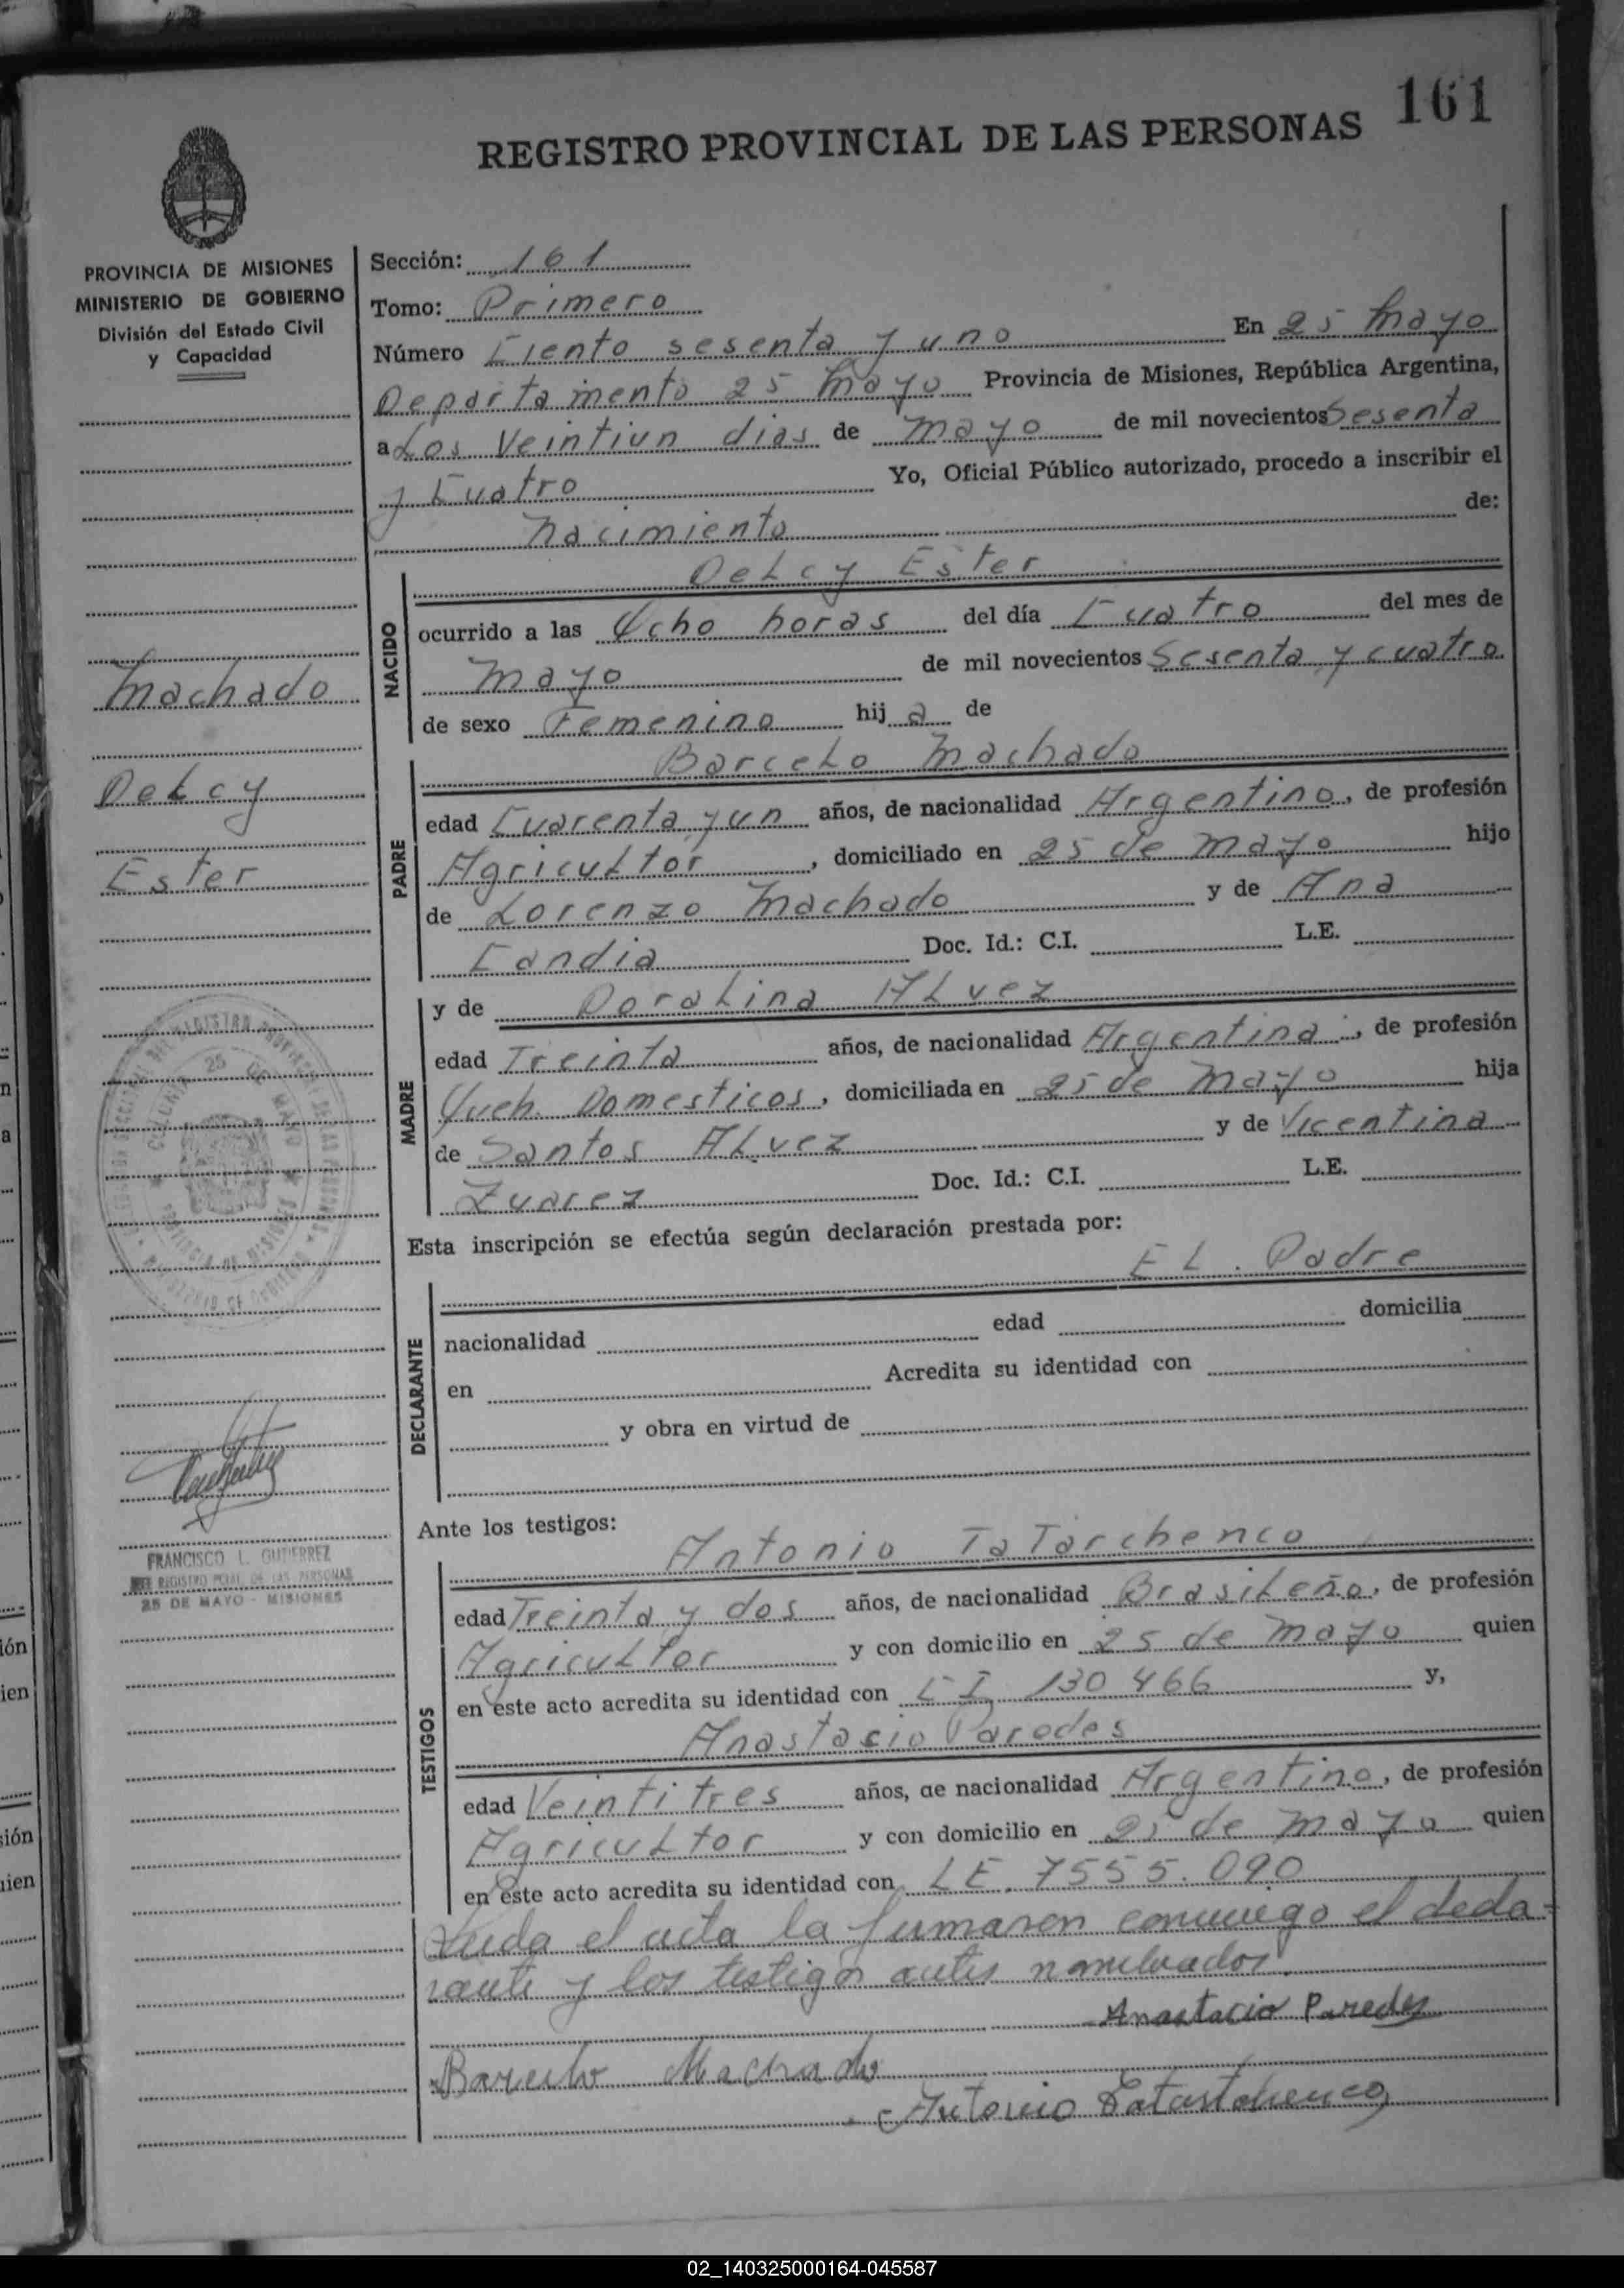 161
REGISTRO PROVINCIAL DE LAS PERSONAS
PROVINCIA DE MISIONES
MINISTERIO DE GOBIERNO
División del Estado Civil
y Capacidad
Machado
Delcy
Ester
FRANCISCO L. GUTIERREZ
REGISTRO PCIAL. DE LAS PERSONAS
25 DE MAYO - MISIONES
Sección: 161
Tomo: Primero
Número Ciento sesenta y uno En 25 Mayo
Departamento 25 Mayo Provincia de Misiones, República Argentina,
a Los Veintiun dias de mayo de mil novecientos Sesenta
y Cuatro Yo, Oficial Público autorizado, procedo a inscribir el
nacimiento de:
DeLcy Ester
NACIDO
ocurrido a las Ocho horas del día Cuatro del mes de
mayo de mil novecientos Sesenta y cuatro
de sexo Femenino hija de
Barcelo Machado
PADRE
edad Cuarenta y un años, de nacionalidad Argentino, de profesión
Agricultor, domiciliado en 25 de mayo hijo
de Lorenzo Machado y de Ana
Candia Doc. Id.: C.I. L.E.
MADRE
y de Doralina Alvez
edad Treinta años, de nacionalidad Argentina, de profesión
Queh. Domesticos, domiciliada en 25 de mayo hija
de Santos Alvez y de Vicentina
Zuarez Doc. Id.: C.I. L.E.
Esta inscripción se efectúa según declaración prestada por:
EL. Padre
DECLARANTE
nacionalidad edad domicilia
en Acredita su identidad con
y obra en virtud de
Ante los testigos:
Antonio Tatarchenco
TESTIGOS
edad Treinta y dos años, de nacionalidad Brasileño, de profesión
Agricultor y con domicilio en 25 de mayo quien
en este acto acredita su identidad con CI 130466 y,
Anastacio Paredes
edad Veintitres años, de nacionalidad Argentino, de profesión
Agricultor y con domicilio en 25 de mayo quien
en este acto acredita su identidad con LE. 7555.090
Leida el acta la firmaron conmigo el decla-
rante y los testigos antes nombrados.
Anastacio Paredes
Barcelo Machado
Antonio Tatartchenco
02_140325000164-045587